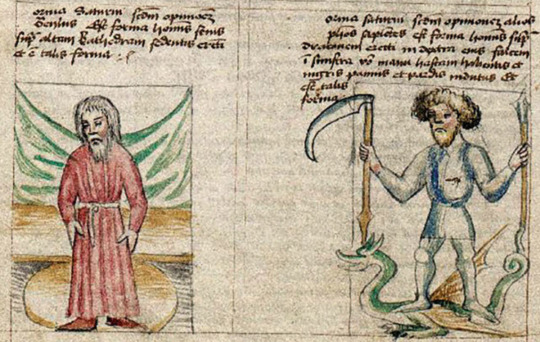 orma Saturni scdm opinionez
Est forma hominis senis
sup altam Kathedram sedentis erecti
et e talis forma
orma saturni scdm opinionez alios
est forma hominis sup
Draconem erecti in dextra eius falcem
i sinistra vo manu hastam habentis et
nigris pannis et pardis indutus Et
est talis
forma